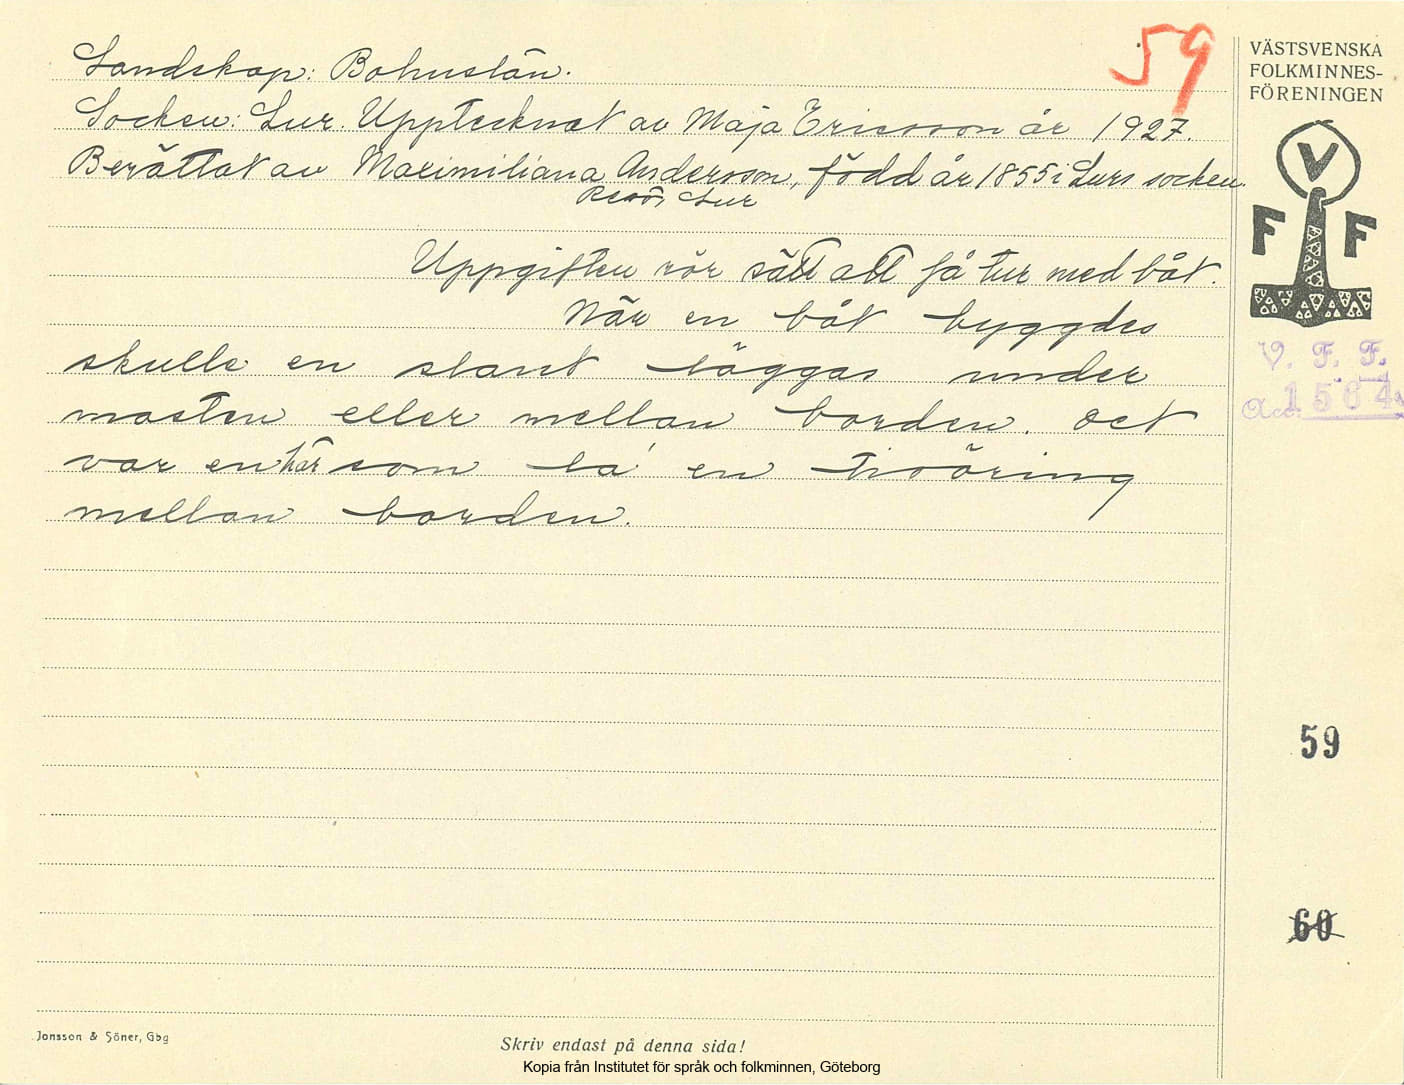 59
Landskap: Bohuslän.
Socken: Lur. Upptecknat av Maja Ericsson år 1927.
Berättat av Maximiliana Andersson, född år 1855 i Lurs socken.
Resö, Lur
Uppgiften rör sätt att få tur med båt.
När en båt byggdes
skulle en slant läggas under
masten eller mellan borden. Det
var en här som la en tvåöring
mellan borden.
VÄSTSVENSKA
FOLKMINNES-
FÖRENINGEN
V
F F
V. F. F.
Acc. 1564
59
60
Jonsson & Söner, Gbg
Skriv endast på denna sida!
Kopia från Institutet för språk och folkminnen, Göteborg